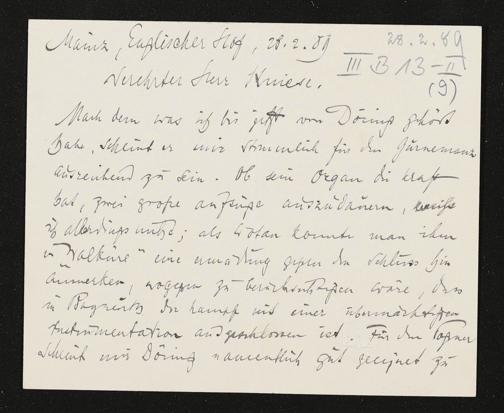 Mainz, Englischer Hof, 28.2.89
28.2.89
III B 13-II
(9)
Verehrter Herr Kniese.
Nach dem was ich bis jetzt von Döring gehört
habe, scheint er mir stimmlich für den Gurnemanz
ausreichend zu sein. Ob sein Organ die Kraft
hat, zwei große Aufzüge auszudauern,
ich allerdings nicht; als Wotan konnte man ihm
in "Walküre" eine Ermattung gegen den Schluss hin
anmerken, wogegen zu berücksichtigen wäre, dass
in Bayreuth der Kampf mit einer übermächtigen
Instrumentation ausgeschlossen ist. Für den Pogner
scheint mir Döring namentlich gut geeignet zu